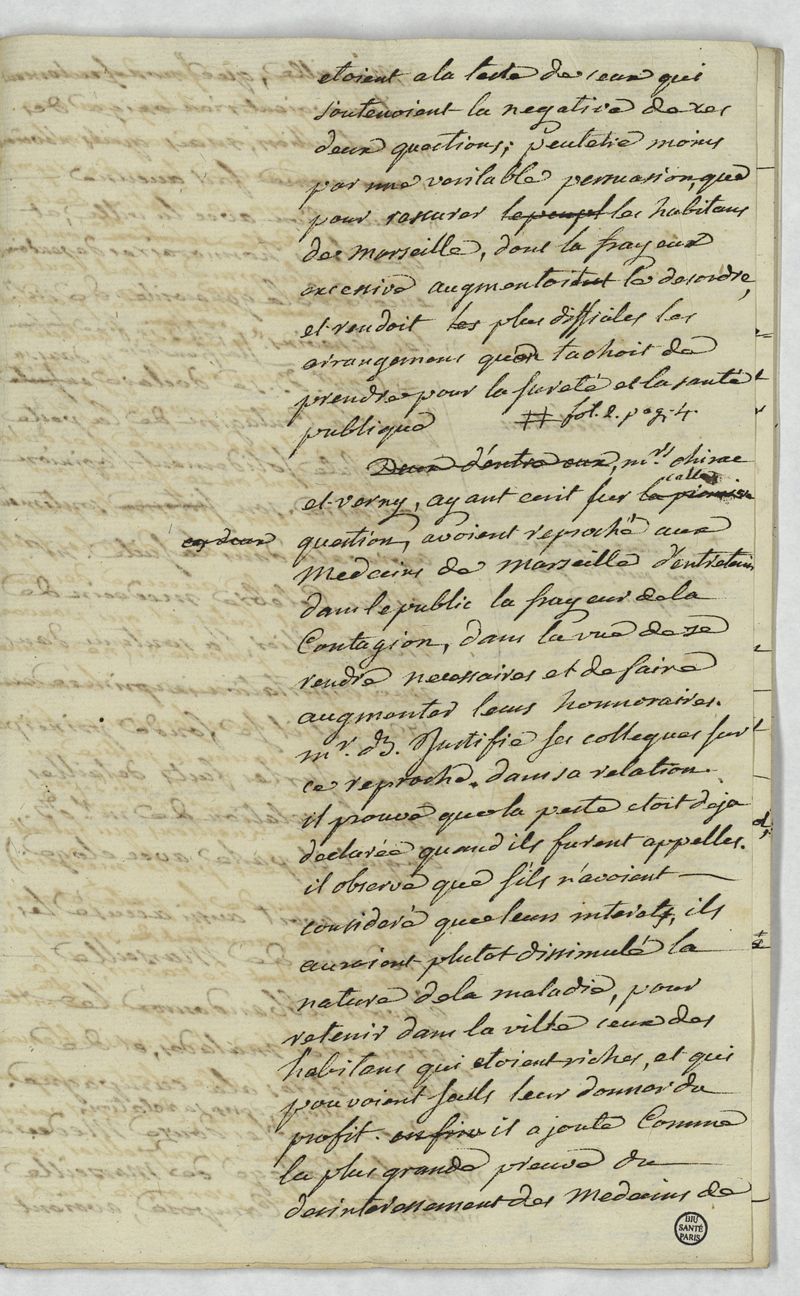 etoient a la teste de ceux qui
soutenoient la negative de ces
deux questions; peutetre moins
par une veritable persuasion, que
pour rassurer le peupl les habitans
de Marseille, dont la frayeur
excessive augmentoit le desordre,
et rendoit les plus difficiles les
arrangemens qu'on tachoit de
prendre pour la sureté et la santé
publique ## fol. 2. pag. 4.
Deux d'entre eux, mrs. chirac
cette
et verny, ayant ecrit sur la premiere
question, avoient reproché aux
ces deux
Medecins de Marseille d'entretenir
dans le public la frayeur de la
Contagion, dans la vue de se
rendre necessaires et de faire
augmenter leurs honnoraires.
mr. d3. Justifie ses collegues sur
ce reproche. dans sa relation.
il prouve que la peste etoit deja
declarée quand ils furent appellés.
il observe que s'ils n'avoient
consideré que leurs interets, ils
auroient plutot dissimulé la
nature de la maladie, pour
retenir dans la ville ceux des
habitans qui etoient riches, et qui
pouvoient seuls leur donner du
profit. enfin il ajoute Comme
la plus grande preuve du
desinteressement des Medecins de
BIU
SANTÉ
PARIS